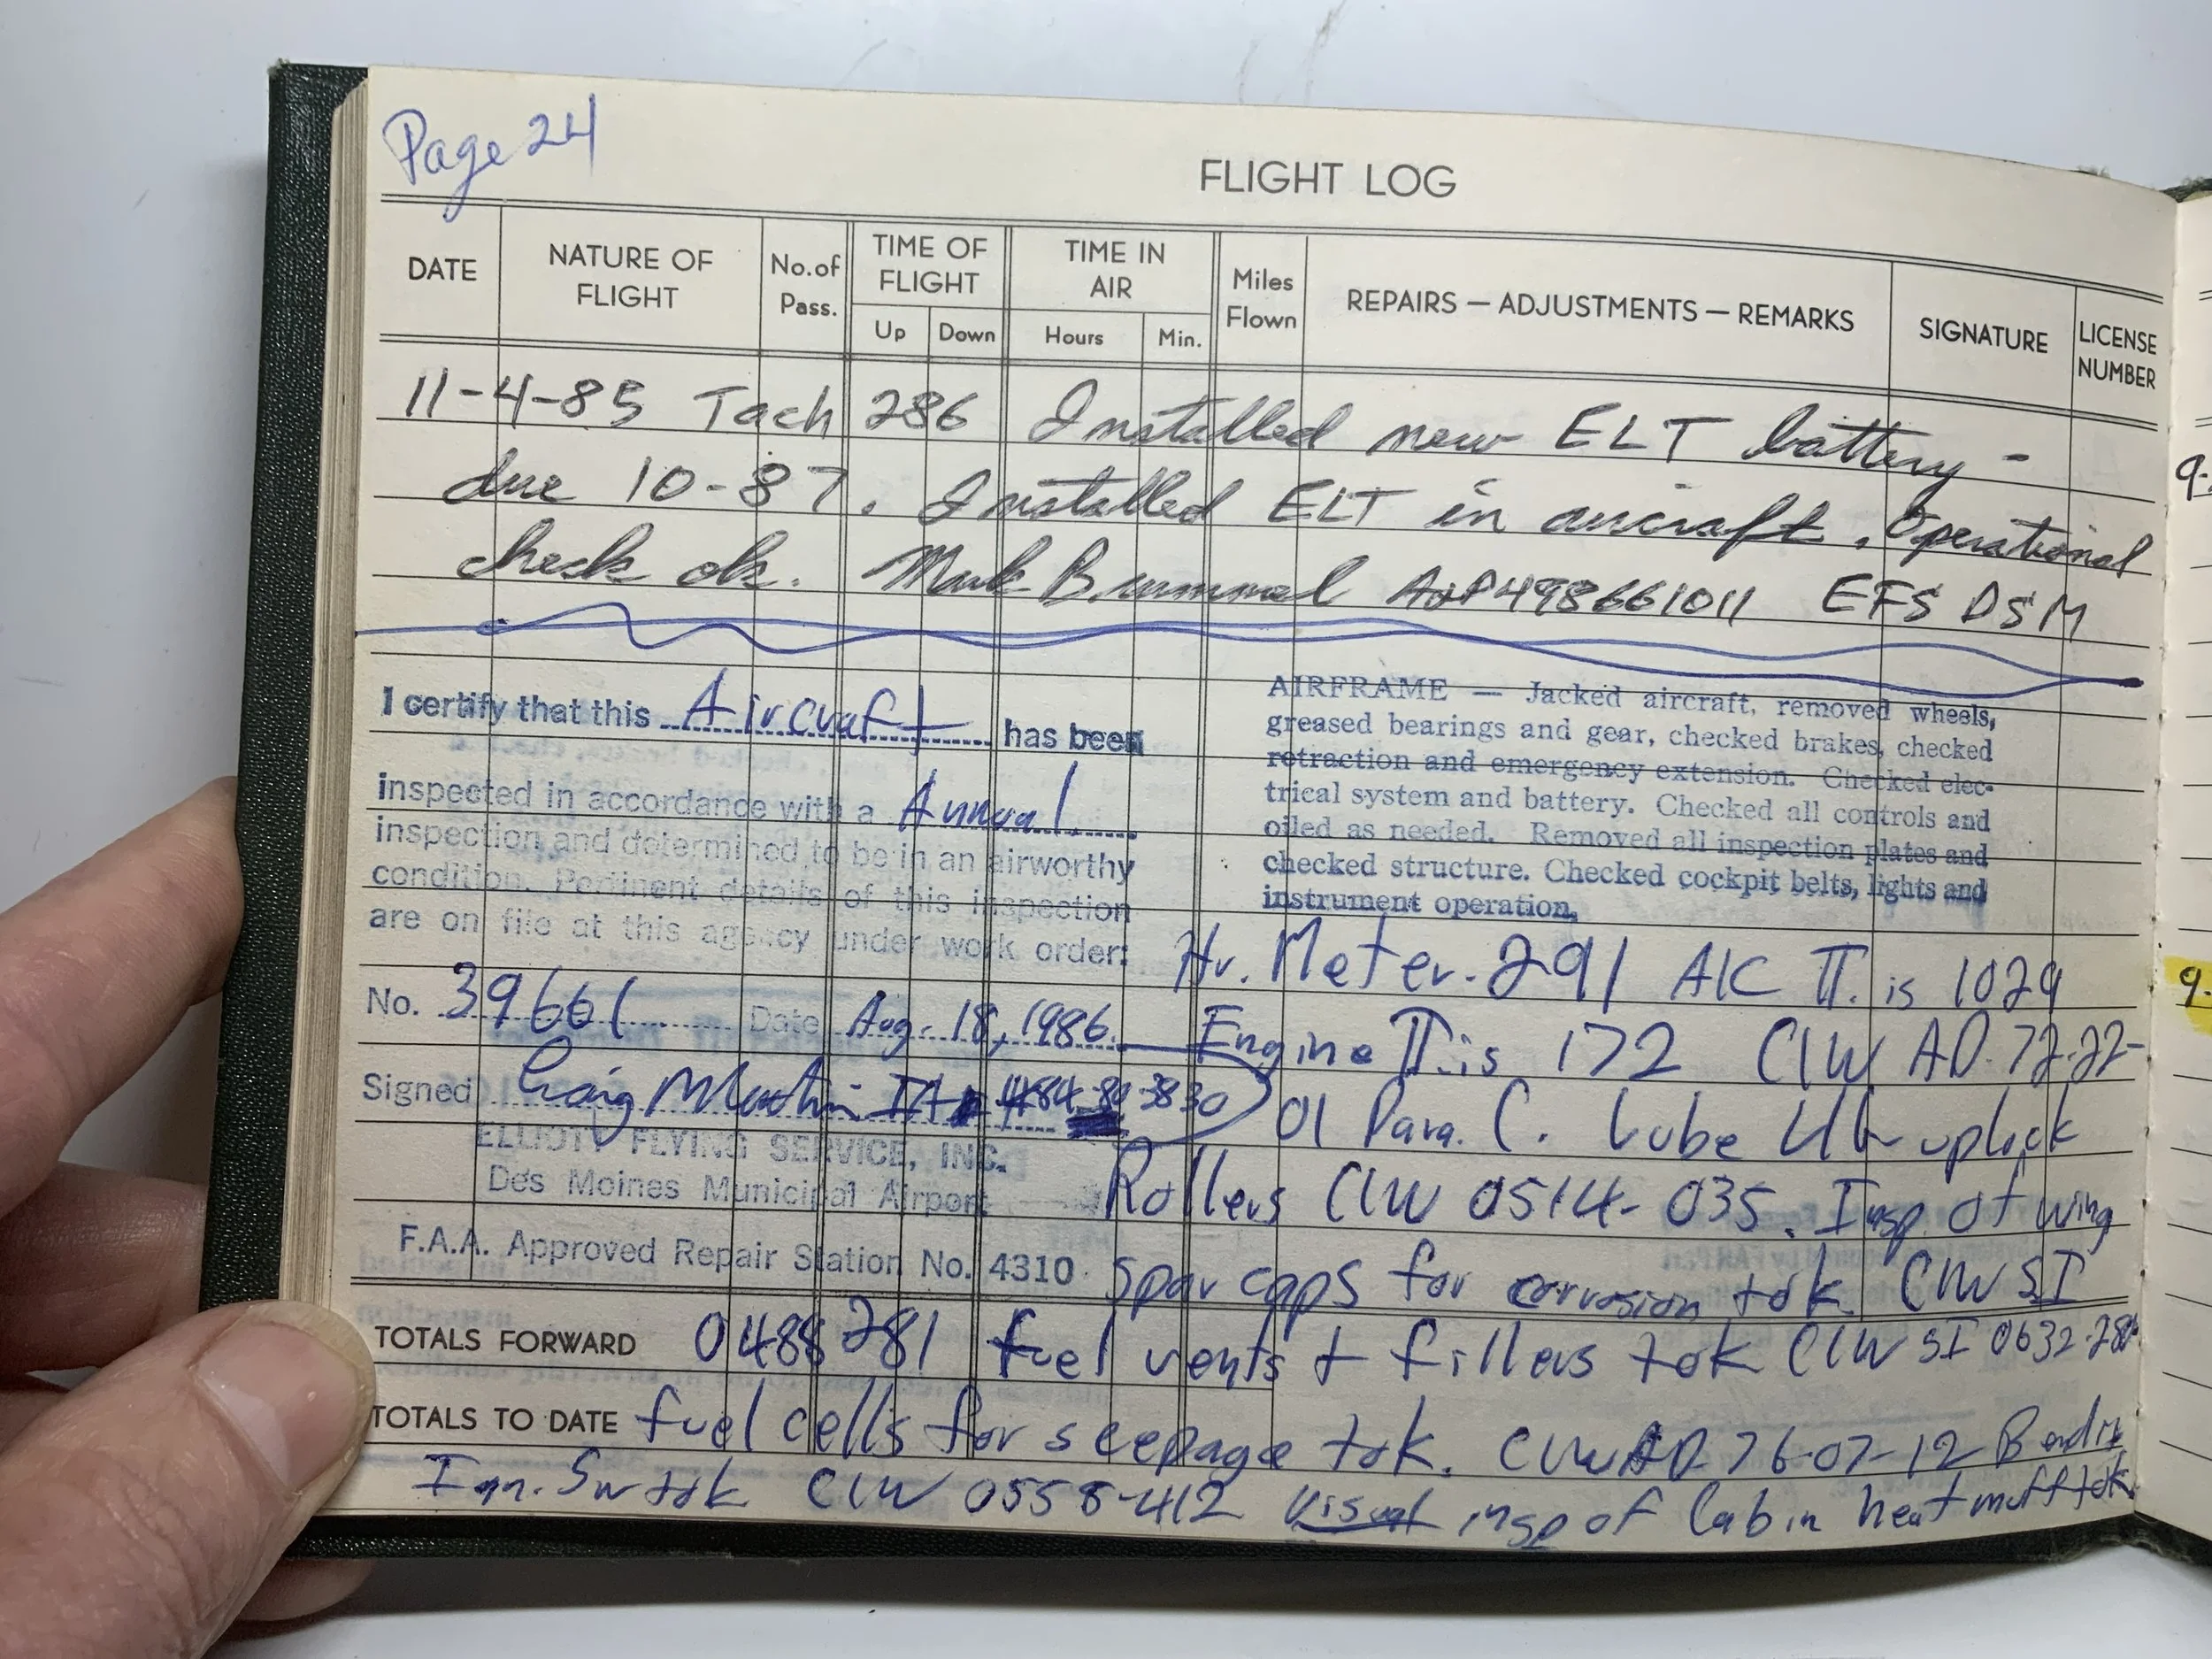 Page 24
FLIGHT LOG
DATE
NATURE OF FLIGHT
No. of Pass.
TIME OF FLIGHT
Up
Down
TIME IN AIR
Hours
Min.
Miles Flown
REPAIRS — ADJUSTMENTS — REMARKS
SIGNATURE
LICENSE NUMBER
11-4-85 Tach 286 Installed new ELT battery -
due 10-87. Installed ELT in aircraft, Operational
check ok. Mark Brummel A&P498661011 EFS DSM
I certify that this Aircraft has been
inspected in accordance with a Annual
inspection and determined to be in an airworthy
condition. Pertinent details of this inspection
are on file at this agency under work order:
No. 39661 Date Aug. 18, 1986
Signed Craig IA 484-80-3830
ELLIOTT FLYING SERVICE, INC.
Des Moines Municipal Airport
F.A.A. Approved Repair Station No. 4310
AIRFRAME — Jacked aircraft, removed wheels,
greased bearings and gear, checked brakes, checked
retraction and emergency extension. Checked elec-
trical system and battery. Checked all controls and
oiled as needed. Removed all inspection plates and
checked structure. Checked cockpit belts, lights and
instrument operation.
Hr. Meter. 291 A/C TT. is 1029
Engine TT. is 172 C/W AD. 72-22-
01 Para. C. Lube uplock
Rollers C/W 0514-035. Insp. of wing
Spar caps for corrosion tok. C/W SI
TOTALS FORWARD 0488281 fuel vents + fillers tok C/W SI 0632-280
TOTALS TO DATE fuel cells for seepage tok. C/W AD 76-07-12 Bendix
Ign. Sw tok C/W 0558-412 Visual insp of Cabin heat muff tok.
9-
9-